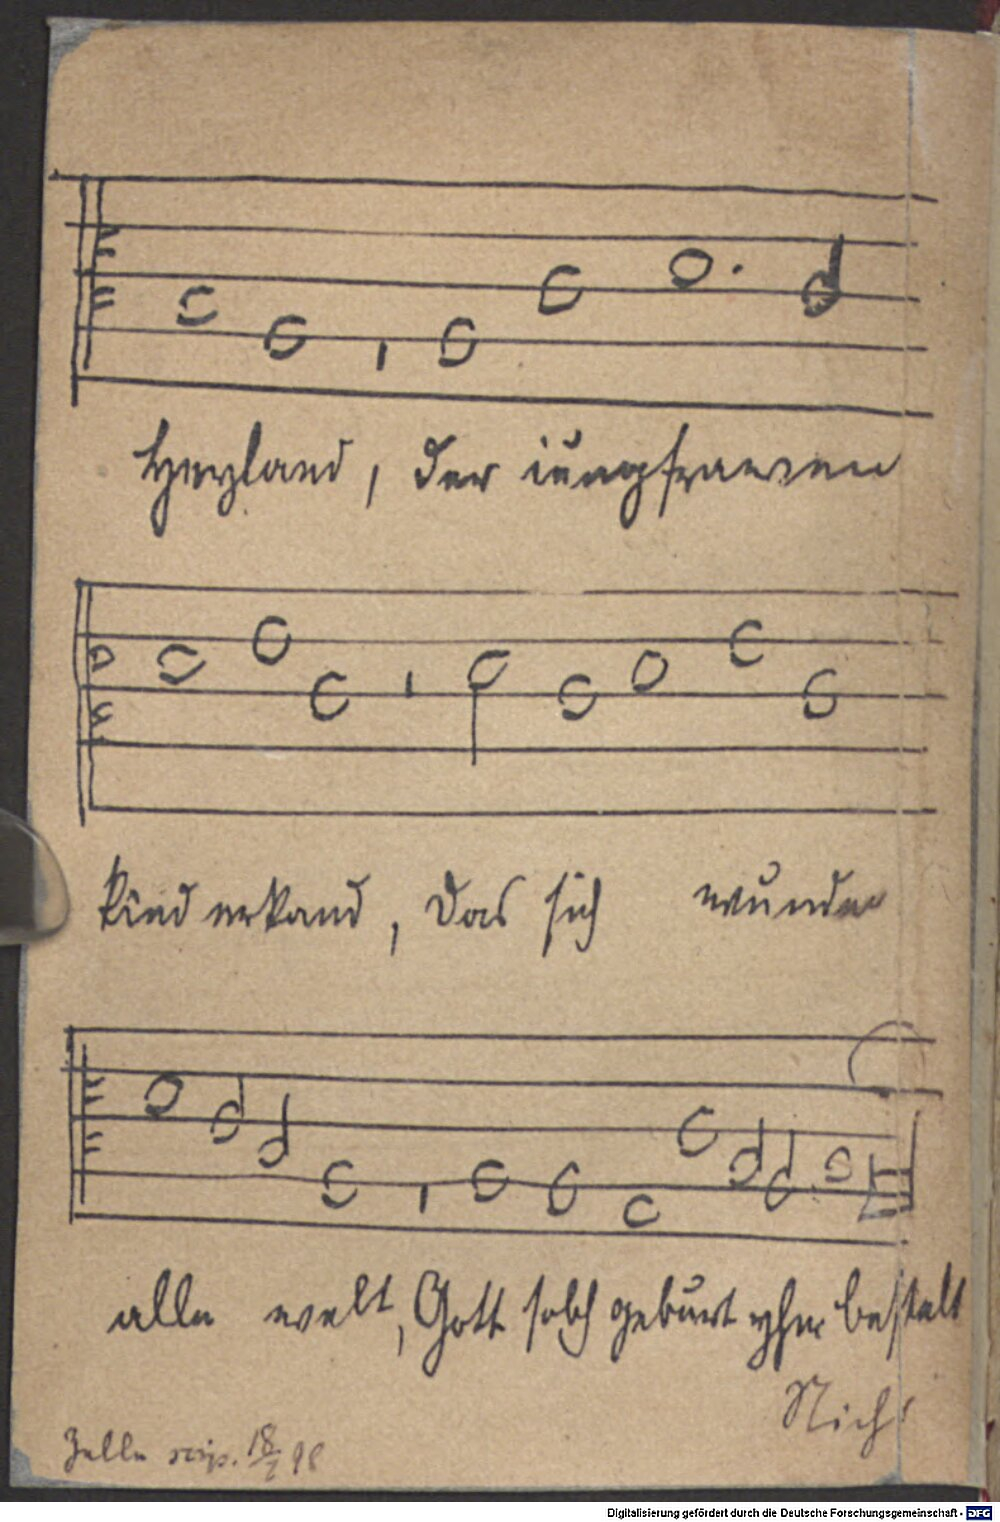 Heyland, der iungfrawen
kind erkand, Das sich wunder
alle welt, Gott solch geburt yhm bestalt
Nich
Zelle scrips. 18/I 98
Digitalisierung gefördert durch die Deutsche Forschungsgemeinschaft - DFG